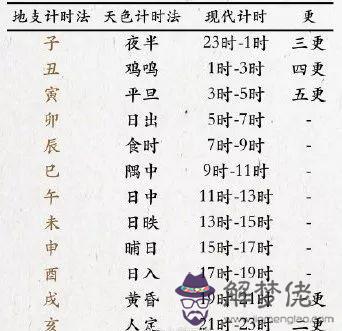 地支计时法 天色计时法 现代计时 更
子 夜半 23时-1时 三更
丑 鸡鸣 1时-3时 四更
寅 平旦 3时-5时 五更
卯 日出 5时-7时 -
辰 食时 7时-9时 -
巳 隅中 9时-11时 -
午 日中 11时-13时 -
未 日昳 13时-15时 -
申 晡日 15时-17时 -
酉 日入 17时-19时 -
戌 黄昏 19时-21时 一更
亥 人定 21时-23时 二更
解梦佬